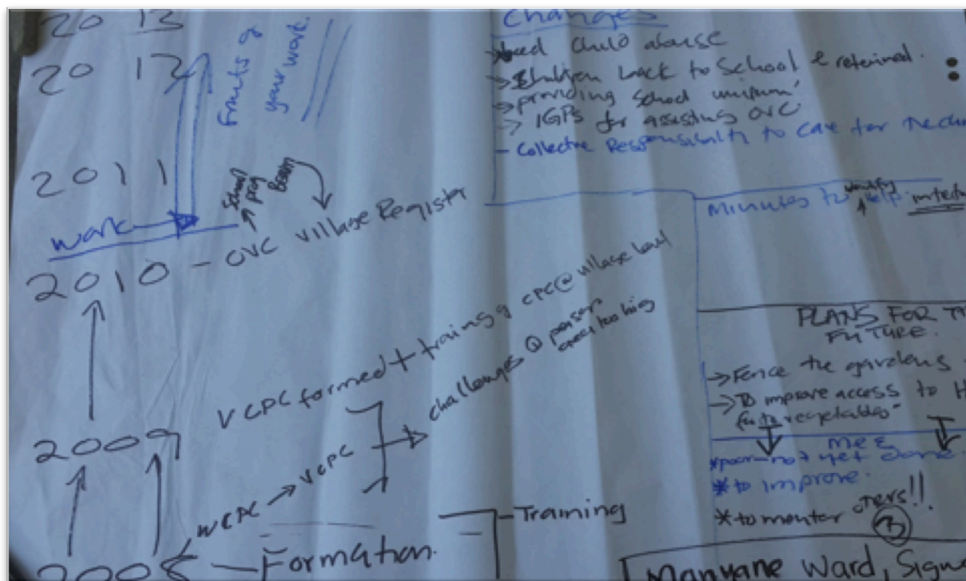 2013
2012
Fruits of
your work.
2011
work
School
prog
2010 - OVC Village Register
VCPC formed + training CPC @ village level
challenges @
2009
WCPC → VCPC
2008 - Formation.
- Training
Changes
Child abuse
→ Children back to School & retained.
→ providing School uniform
→ IGPs for assisting OVC
- Collective Responsibility to care for the
Minutes to
PLANS FOR
FUTURE.
→ Fence the gardens
→ To improve access to
vegetables
M&E
*poor - not yet done.
* to improve.
* to mentor others!!
3
Manyane Ward,